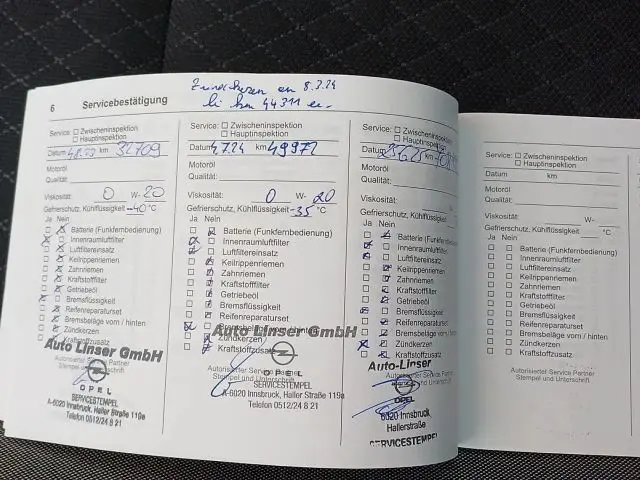 6 Servicebestätigung
am 8.3.24
km 44311
Service: Zwischeninspektion
Hauptinspektion
Datum km 32709
Motoröl
Qualität:
Viskosität: 0 W-20
Gefrierschutz, Kühlflüssigkeit -40°C
Ja Nein
Batterie (Funkfernbedienung)
Innenraumluftfilter
Luftfiltereinsatz
Keilrippenriemen
Zahnriemen
Kraftstofffilter
Getriebeöl
Bremsflüssigkeit
Reifenreparaturset
Bremsbeläge vorn / hinten
Zündkerzen
Auto Linser GmbH
Autorisierter Service Partner
Stempel und Unterschrift
OPEL
SERVICESTEMPEL
A-6020 Innsbruck, Haller Straße 119a
Telefon 0512/24 8 21
Service: Zwischeninspektion
Hauptinspektion
Datum 4.7.24 km 49972
Motoröl
Qualität:
Viskosität: 0 W-20
Gefrierschutz, Kühlflüssigkeit -35 °C
Ja Nein
Batterie (Funkfernbedienung)
Innenraumluftfilter
Luftfiltereinsatz
Keilrippenriemen
Zahnriemen
Kraftstofffilter
Getriebeöl
Bremsflüssigkeit
Reifenreparaturset
Bremsbeläge vorn / hinten
Auto Linser GmbH
Zündkerzen
Kraftstoffzusatz
Autorisierter Service Partner
Stempel und Unterschrift
OPEL
SERVICESTEMPEL
A-6020 Innsbruck, Haller Straße 119a
Telefon 0512/24 8 21
Service: Zwischeninspektion
Hauptinspektion
Datum km
Motoröl
Qualität:
Viskosität: W-
Gefrierschutz, Kühlflüssigkeit
Ja Nein
Batterie (Funkfernbedienung)
Innenraumluftfilter
Luftfiltereinsatz
Keilrippenriemen
Zahnriemen
Kraftstofffilter
Getriebeöl
Bremsflüssigkeit
Reifenreparaturset
Bremsbeläge vorn / hinten
Zündkerzen
Kraftstoffzusatz
Auto-Linser
OPEL
6020 Innsbruck
Hallerstraße
SERVICESTEMPEL
Service: Zwischeninspektion
Hauptinspektion
Datum km
Motoröl
Qualität:
Viskosität: W-
Gefrierschutz, Kühlflüssigkeit °C
Ja Nein
Batterie (Funkfernbedienung)
Innenraumluftfilter
Luftfiltereinsatz
Keilrippenriemen
Zahnriemen
Kraftstofffilter
Getriebeöl
Bremsflüssigkeit
Reifenreparaturset
Bremsbeläge vorn / hinten
Zündkerzen
Kraftstoffzusatz
Autorisierter Service Partner
Stempel und Unterschrift